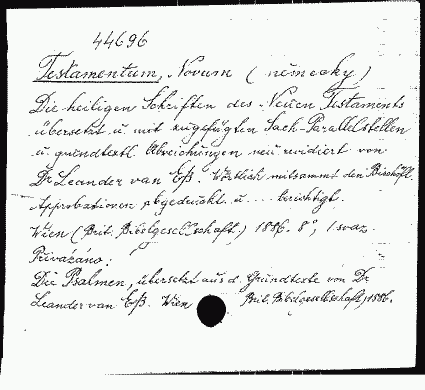 44696
Testamentum, Novum (německy)
Die heiligen Schriften des Neuen Testaments
übersetzt u. mit zugefügten Sach-Parallelstellen
u. grundtextl. Abweichungen neu revidiert von
Dr Leander van Eß. Wörtlich mitsammt den Bischöfl.
Approbationen abgedruckt u.... berichtigt.
Wien (Brit. Bibelgesellschaft) 1886. 8°, 1 svaz.
Přivázáno:
Die Psalmen, übersetzt aus d. Grundtexte von Dr
Leander van Eß. Wien Brit. Bibelgesellschaft, 1886.